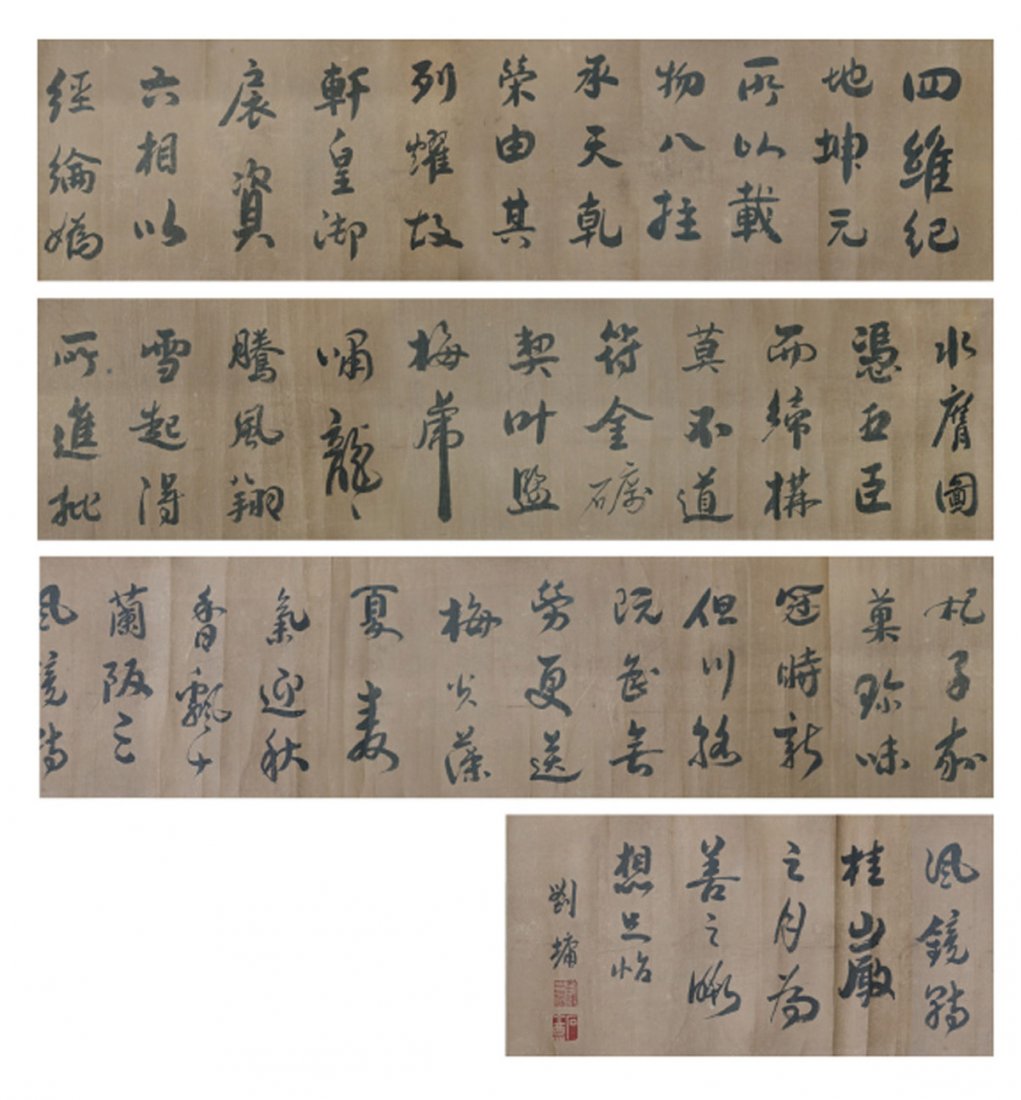 四維紀
地坤元
所以載
物八柱
承天乾
榮由其
列耀故
軒皇御
扆資
六相以
經綸媯
水膺圖
憑五臣
而締構
莫不道
符金礪
契叶鹽
梅虎
嘯龍
騰風翔
雪起得
所進批
杷子
菓珍味
冠時新
但川路
既無
勞更送
梅炎藻
夏麦
氣迎秋
香飄十
蘭阪之
風鏡轉
風鏡轉
桂巖
之月為
善之暇
想怡
劉墉